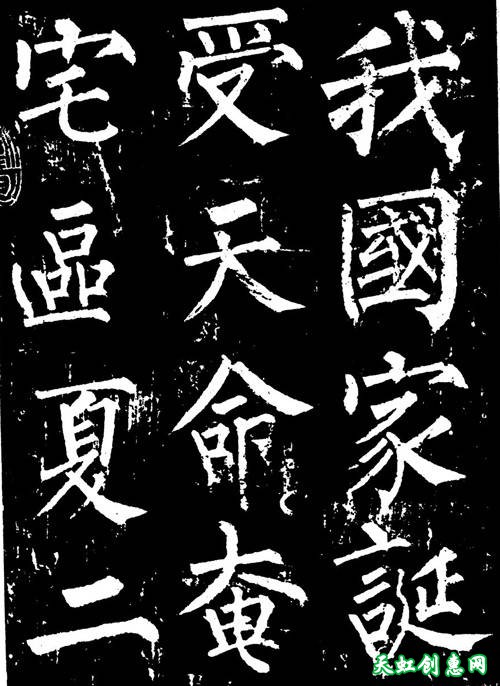 我國家誕
受天命奄
宅區夏二
天虹创意网